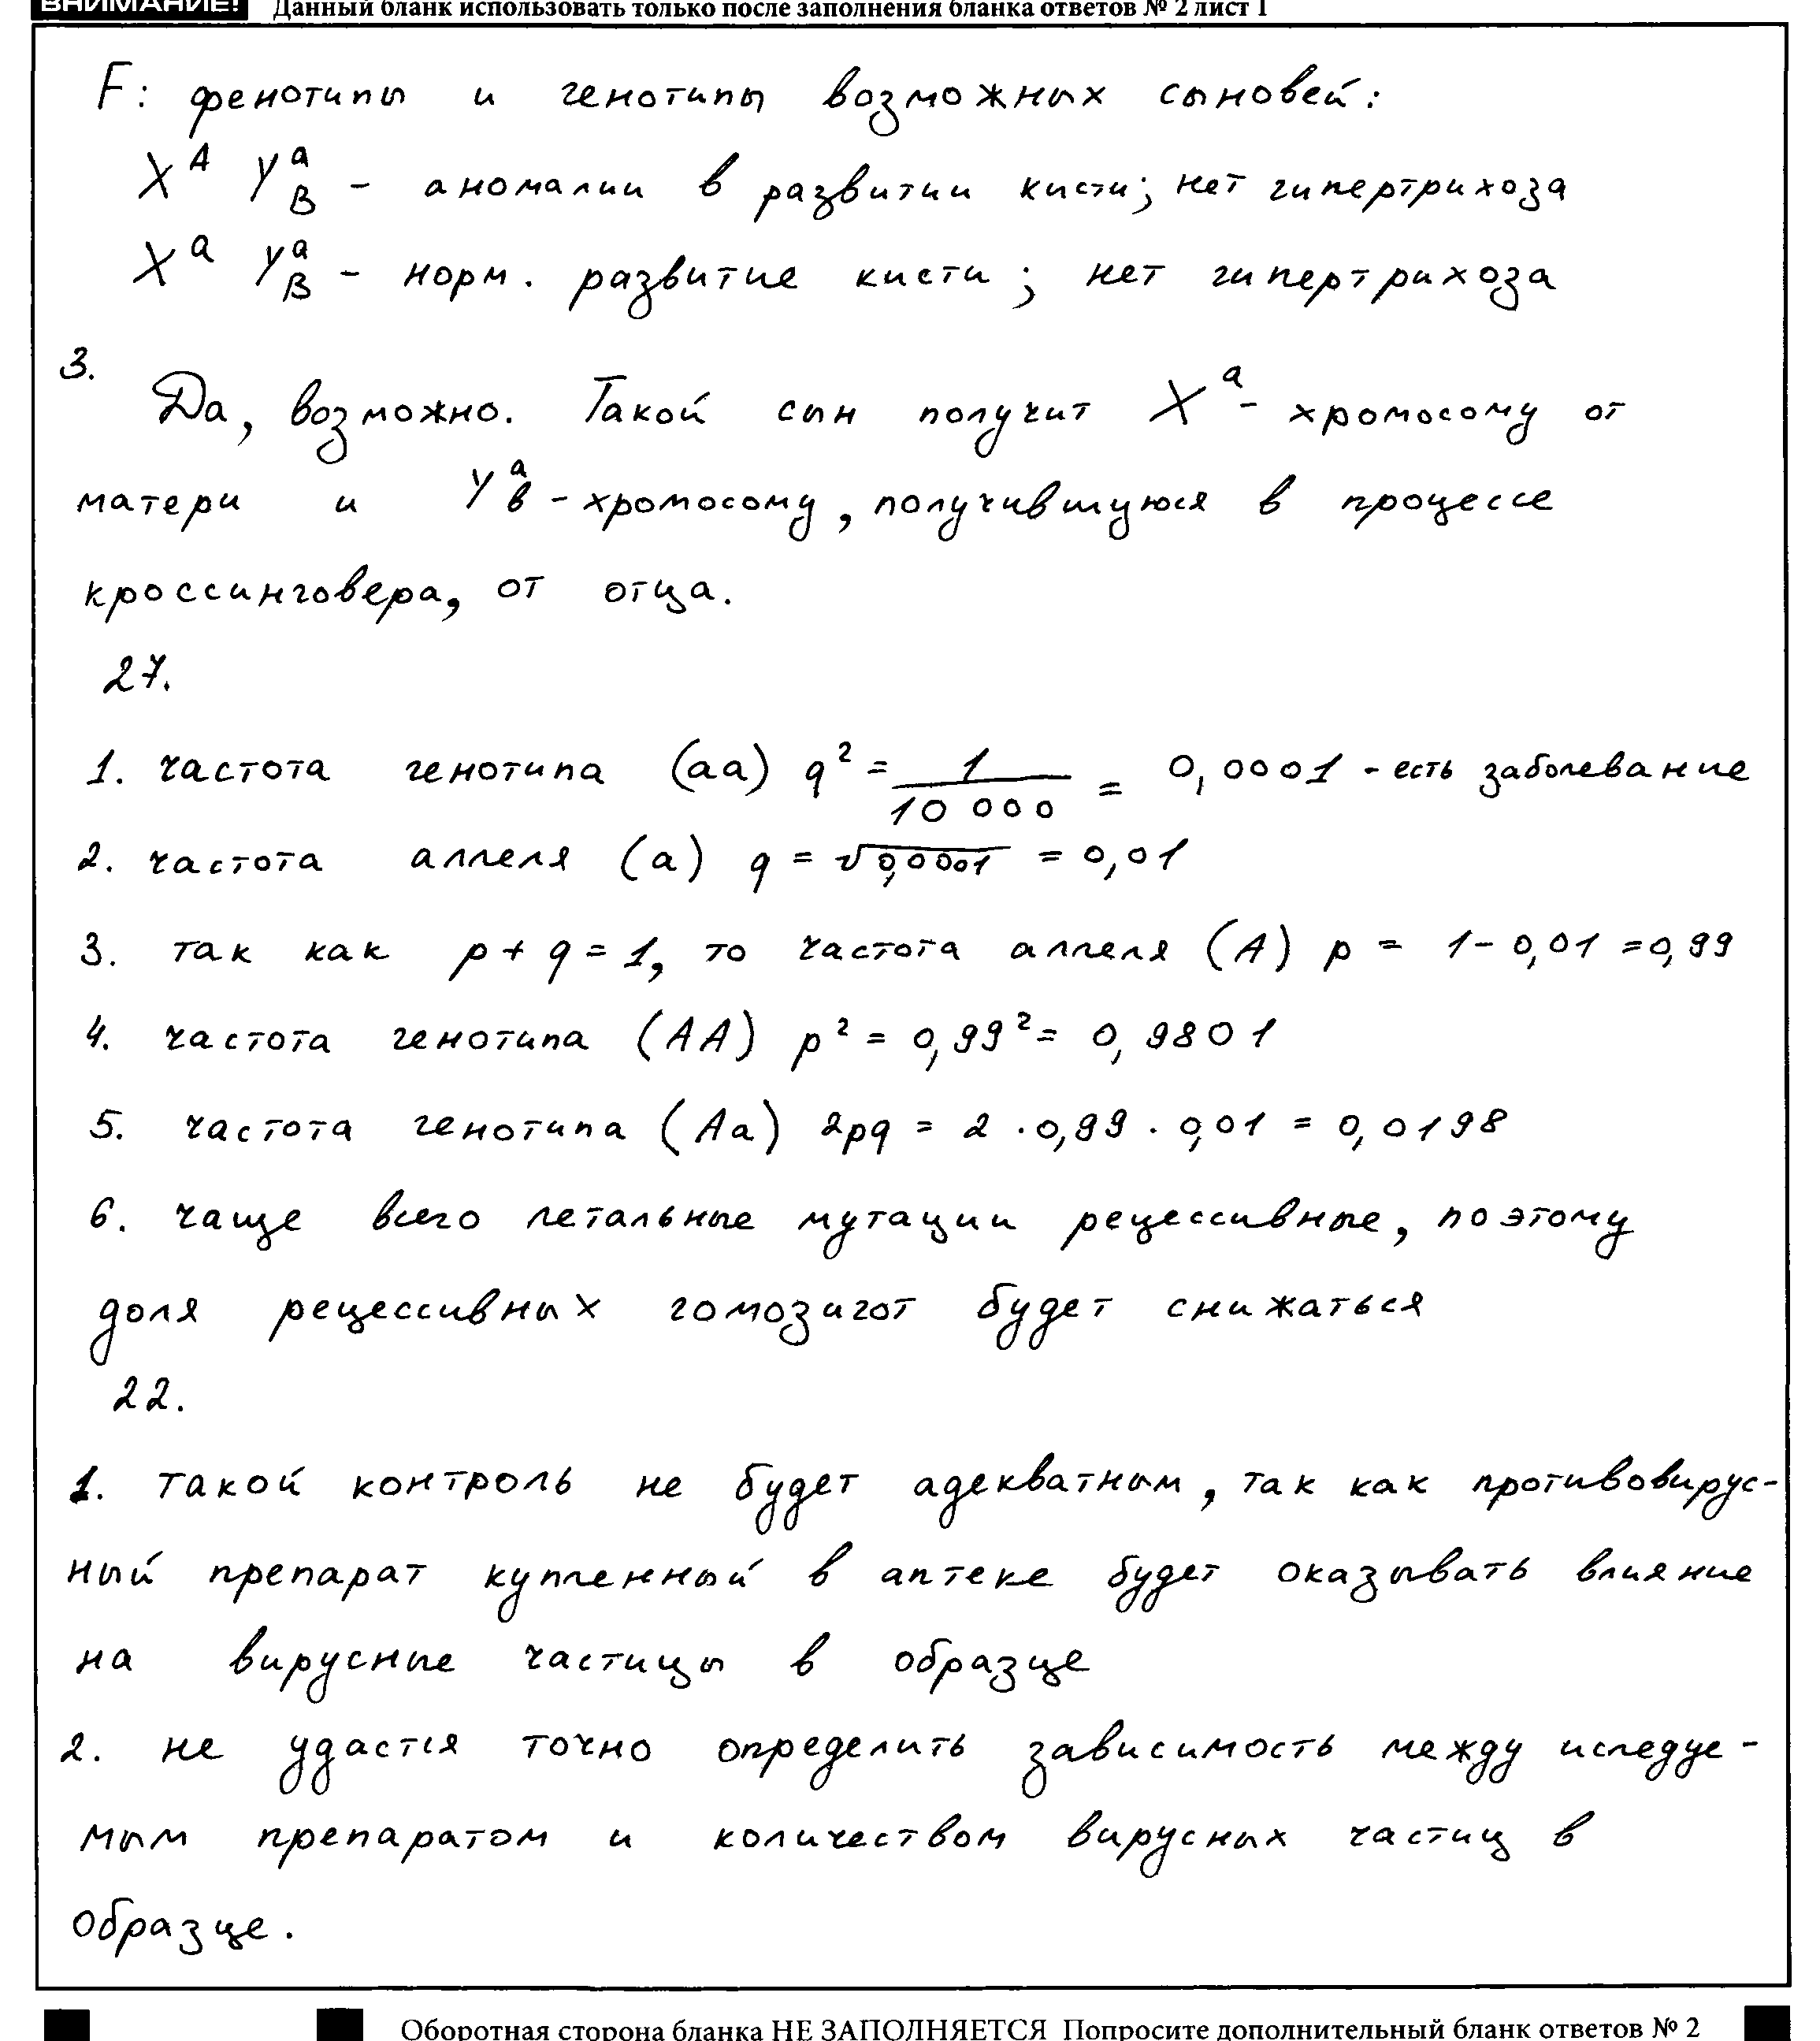 ВНИМАНИЕ! Данный бланк использовать только после заполнения бланка ответов № 2 лист 1
F: фенотипы и генотипы возможных сыновей:
X^A Y^a_B - аномалии в развитии кисти; нет гипертрихоза
X^a Y^a_B - норм. развитие кисти; нет гипертрихоза
3.
Да, возможно. Такой сын получит X^a - хромосому от
матери и Y^a_в - хромосому, получившуюся в процессе
кроссинговера, от отца.
27.
1. частота генотипа (аа) q² = 1/10 000 = 0,0001 - есть заболевание
2. частота аллеля (а) q = √0,0001 = 0,01
3. так как p + q = 1, то частота аллеля (А) p = 1 - 0,01 = 0,99
4. частота генотипа (АА) p² = 0,99² = 0,9801
5. частота генотипа (Аа) 2pq = 2 · 0,99 · 0,01 = 0,0198
6. чаще всего летальные мутации рецессивные, поэтому
доля рецессивных гомозигот будет снижаться
22.
1. такой контроль не будет адекватным, так как противовирус-
ный препарат купленный в аптеке будет оказывать влияние
на вирусные частицы в образце
2. не удастся точно определить зависимость между иследуе-
мым препаратом и количеством вирусных частиц в
образце.
Оборотная сторона бланка НЕ ЗАПОЛНЯЕТСЯ Попросите дополнительный бланк ответов № 2